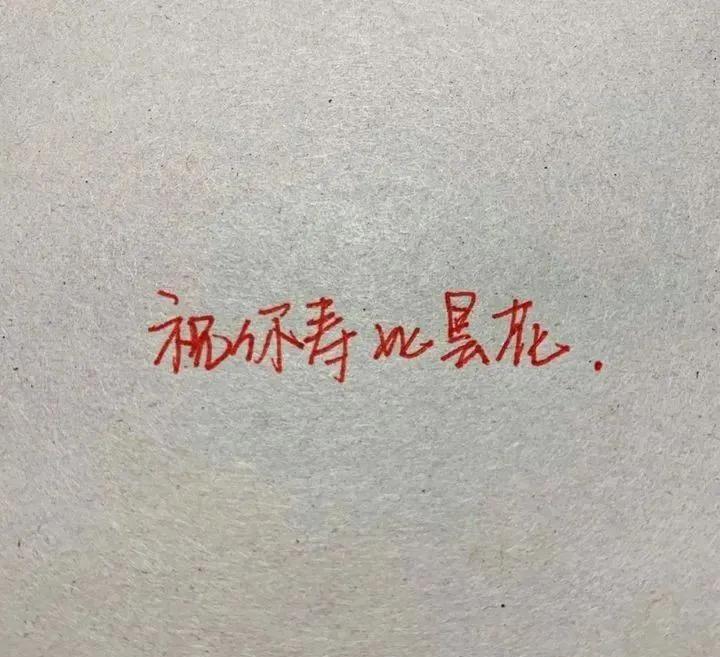 祝你寿比昙花.